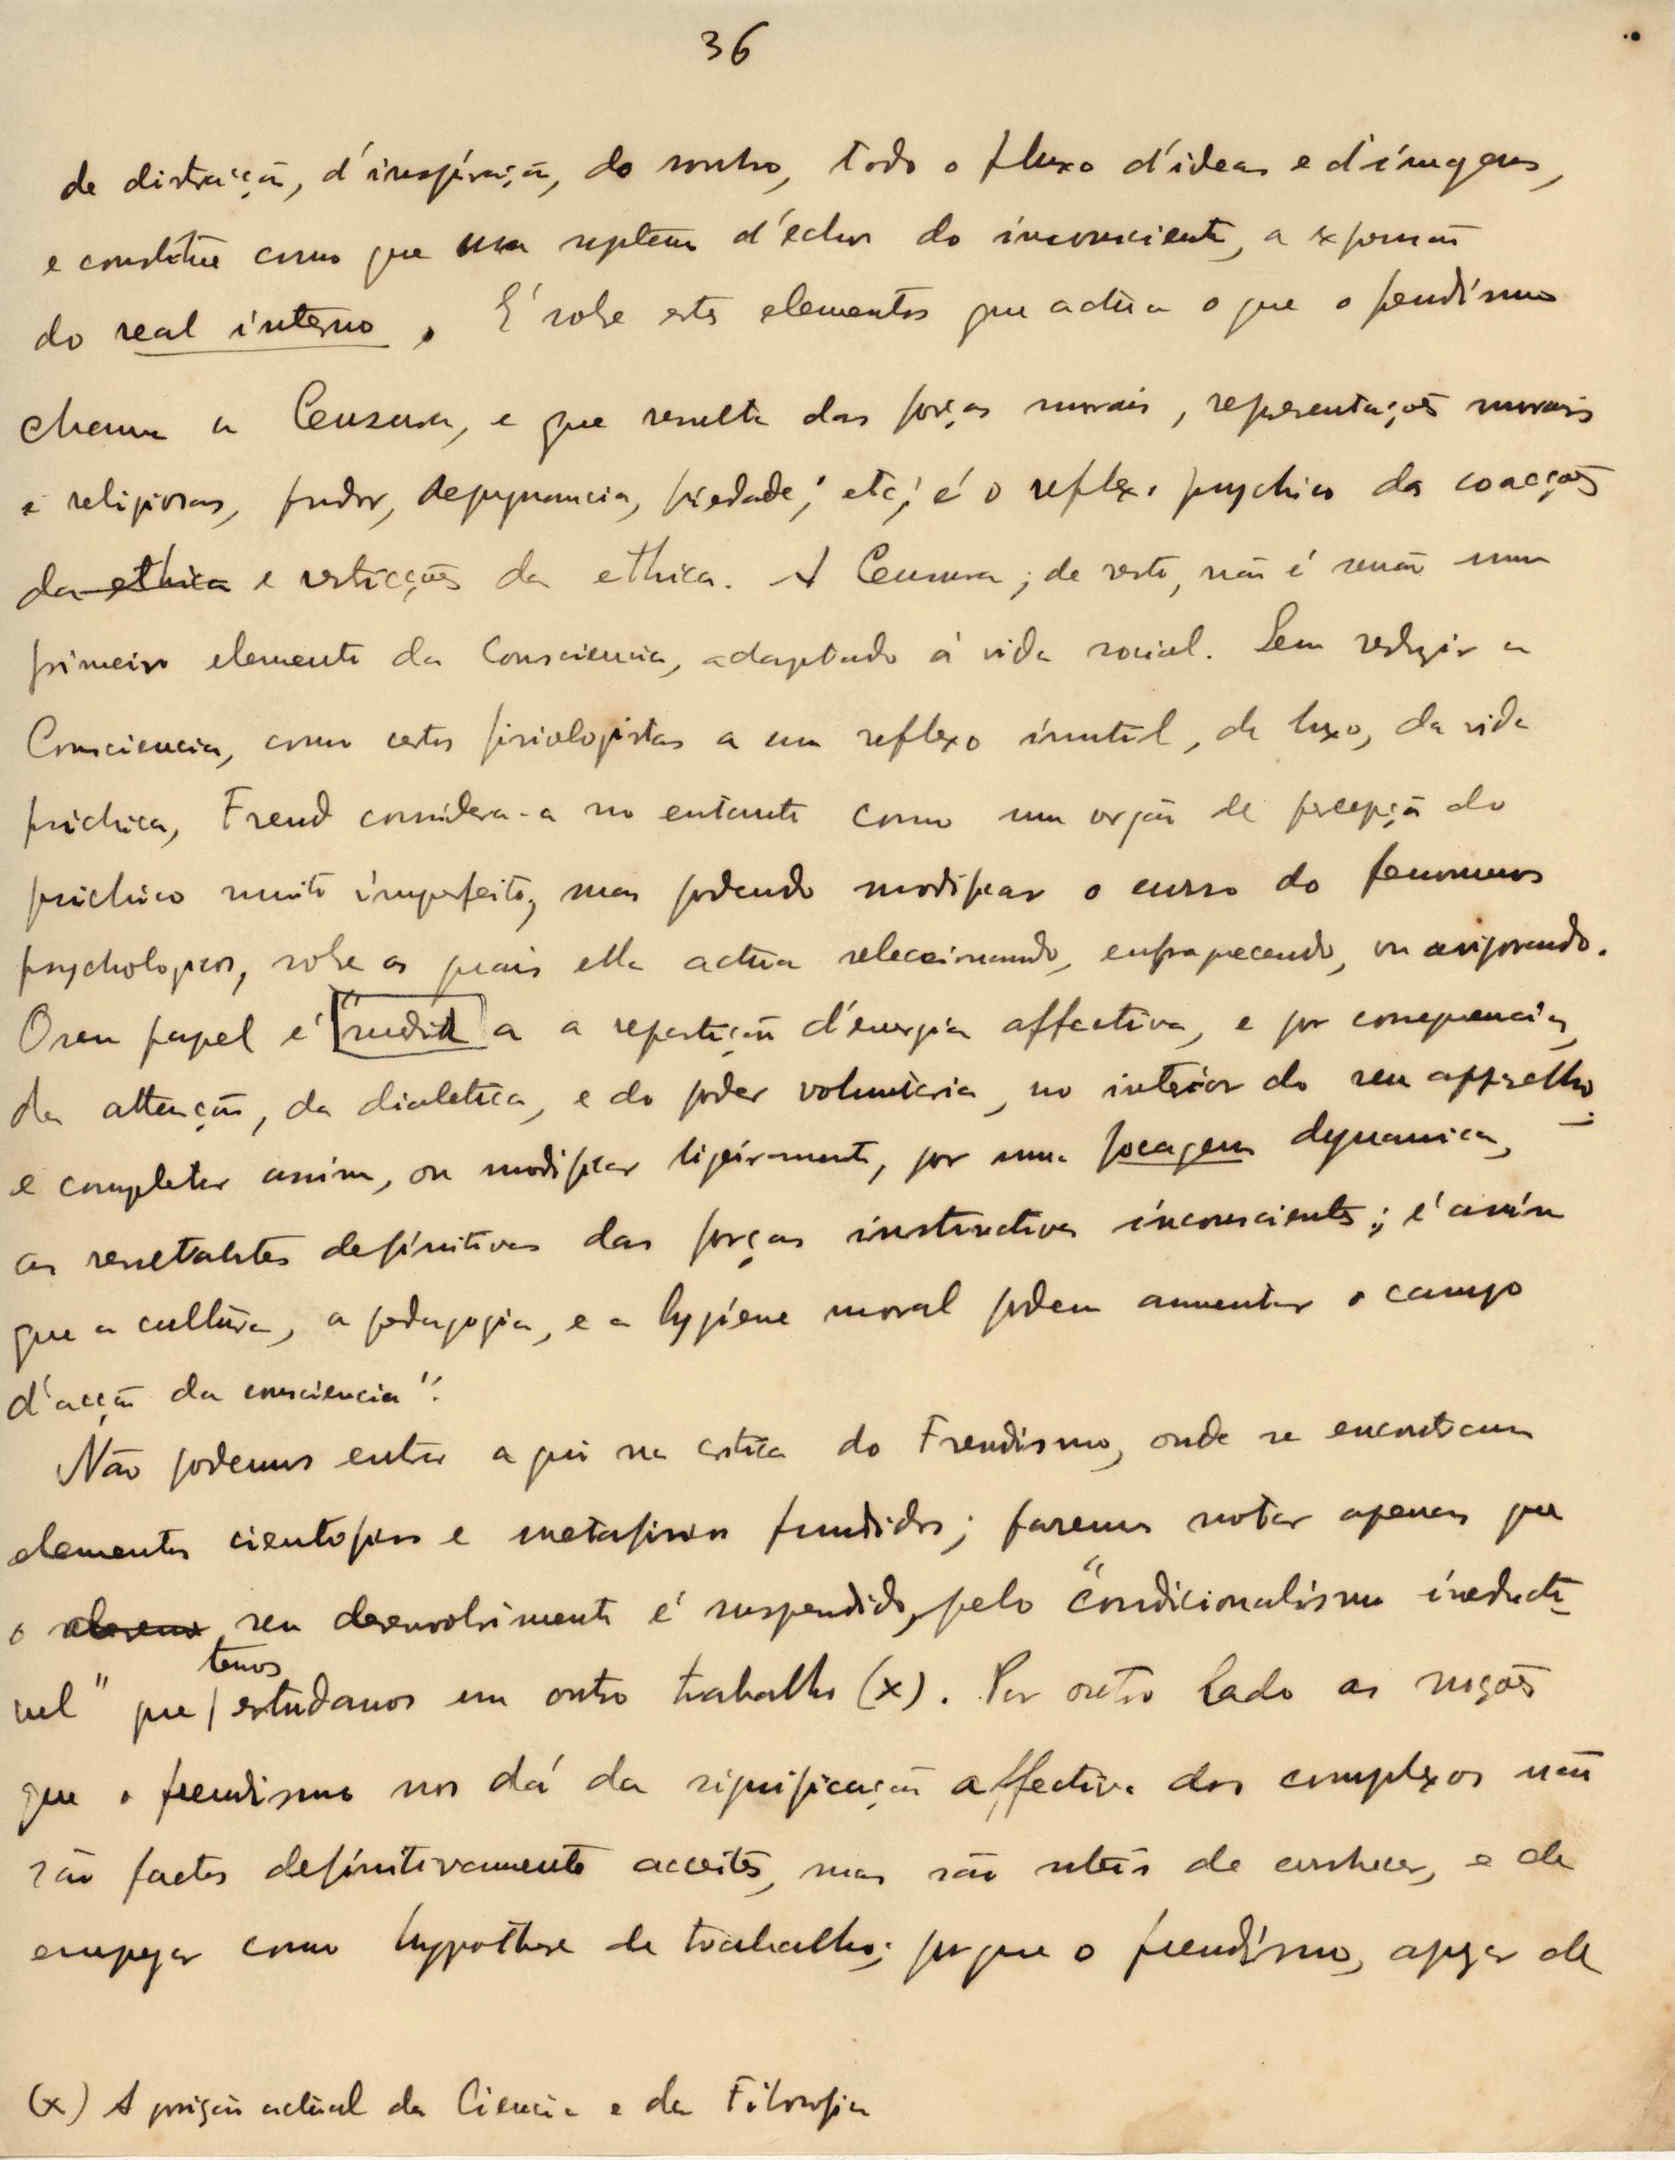 36
de distracção, d'inspiração, do sonho, todo o fluxo d'ideas e d'imagens,
e constitue como que um d'echos do inconsciente, a expressão
do real interno. É sobre estes elementos que actua o que o freudismo
chama a Censura, e que resulta das forças moraes, representações moraes
e religiosas, pudor, repugnancia, piedade, etc; é o reflexo psychico das coacções
da ethica e restricções da ethica. A Censura, de resto, não é senão um
primeiro elemento da Consciencia, adaptado á vida social. Sem reduzir a
Consciencia, como certos fisiologistas a um reflexo inutil, de luxo, da vida
psichica, Freud considera-a no entanto como um orgão de percepção do
psichico muito imperfeito, mas podendo modificar o curso dos fenomenos
psychologicos, sobre os quais ella actua seleccionando, enfraquecendo, ou avigorando.
O seu papel é a a repartição d'energia affectiva, e por consequencia,
da attenção, da dialetica, e do poder voluntario, no interior do seu apparelho
e completar assim, ou modificar ligeiramente, por uma focagem dynamica,
as resultantes definitivas das forças instinctivas inconscientes; é assim
que a cultura, a pedagogia, e a hygiene moral podem aumentar o campo
d'acção da consciencia".
Não podemos entrar aqui na critica do Freudismo, onde se encontram
elementos cientificos e metafisicos fundidos; faremos notar apenas que
o seu desenvolvimento é suspendido, pelo "condicionalismo ireducti-
temos
vel" que / estudamos em outro trabalho (x). Por outro lado as noções
que o freudismo nos dá da significação affectiva dos complexos não
são factos definitivamente acceites, mas são uteis de conhecer, e de
empregar como hypothese de trabalho; porque o freudismo, apezar de
(x) A posição actual da Ciencia e da Filosofia